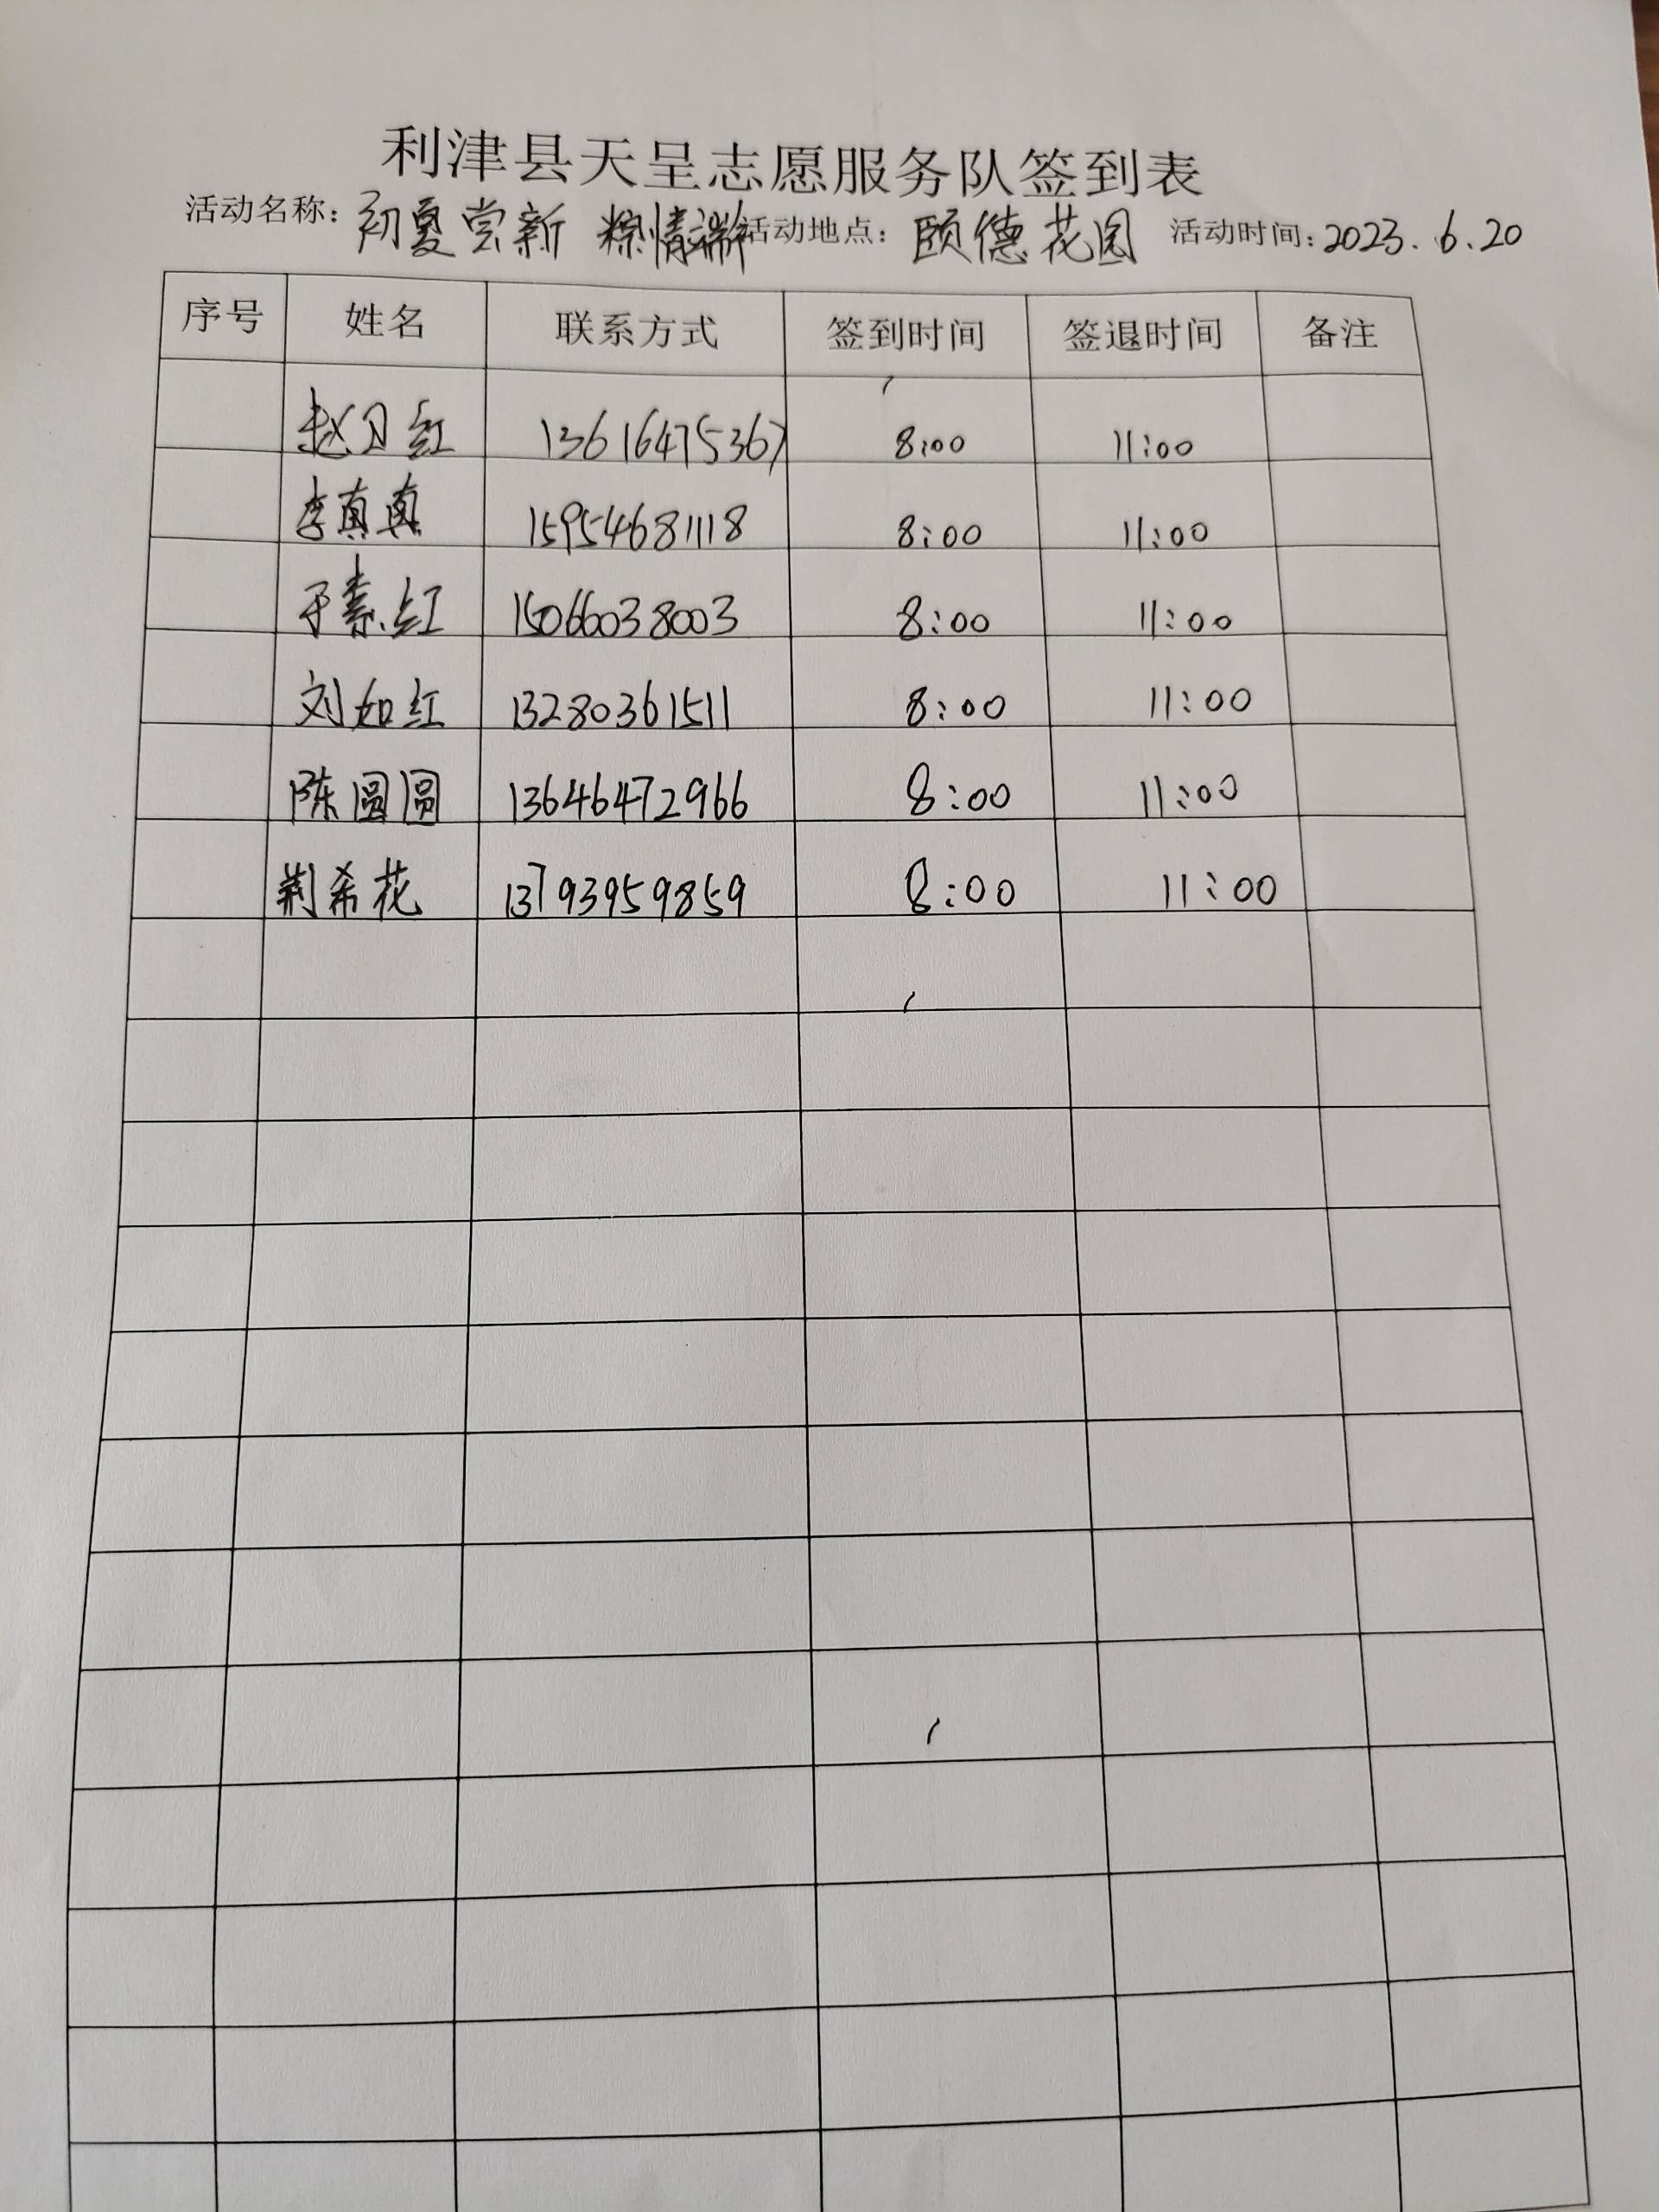 利津县天呈志愿服务队签到表
活动名称：初夏尝新 粽情端午 活动地点：颐德花园 活动时间：2023.6.20
序号 姓名 联系方式 签到时间 签退时间 备注
赵月红 13616475367 8:00 11:00
李真真 15954681118 8:00 11:00
于素红 15066038003 8:00 11:00
刘如红 13280361511 8:00 11:00
陈圆圆 13646472966 8:00 11:00
荆希花 13793959859 8:00 11:00